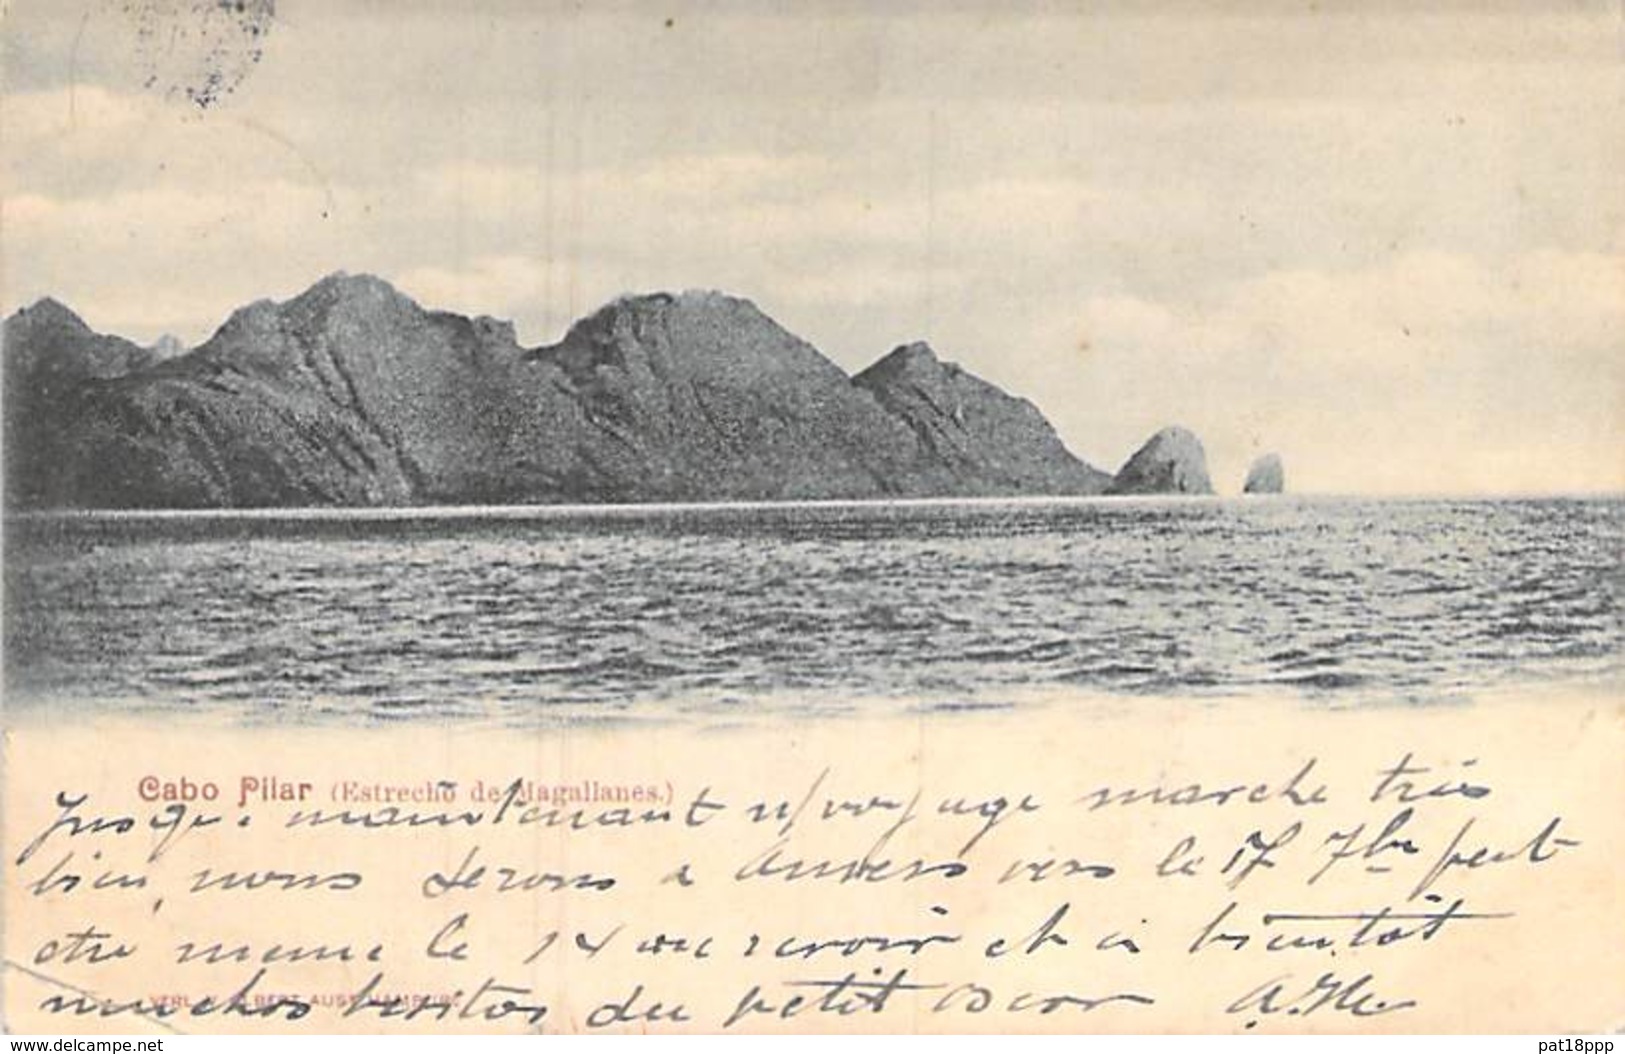 Cabo Pilar (Estrecho de Magallanes.)
Jusqu'à maintenant n/voyage marche très
bien, nous serons a Anvers vers le 17 7bre peut
etre meme le 14 au revoir et à bientôt
VERL. V. ALBERT AUST HAMBURG
muchos besitos du petit Oscar
www.delcampe.net
pat18ppp